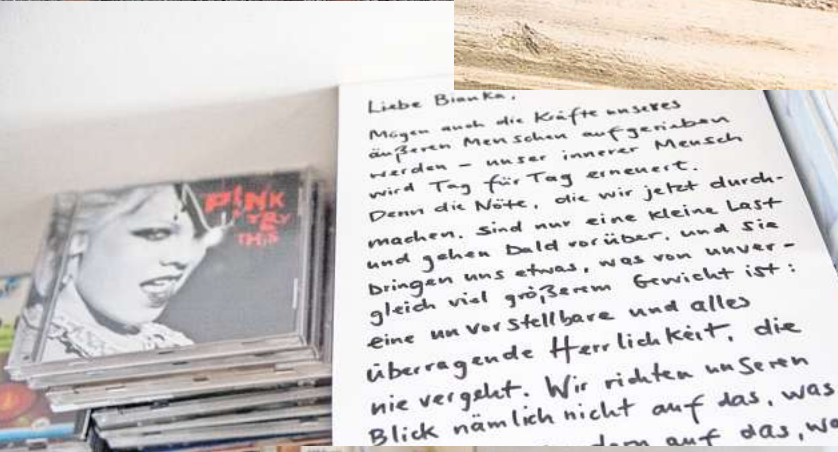 P!NK
TRY
THiS
Liebe Bianka,
Mögen auch die Kräfte unseres
äußeren Menschen aufgerieben
werden – unser innerer Mensch
wird Tag für Tag erneuert.
Denn die Nöte, die wir jetzt durch-
machen, sind nur eine kleine Last
und gehen bald vorüber, und sie
bringen uns etwas, was von unver-
gleich viel größerem Gewicht ist:
eine unvorstellbare und alles
überragende Herrlichkeit, die
nie vergeht. Wir richten unseren
Blick nämlich nicht auf das, was
auf das,